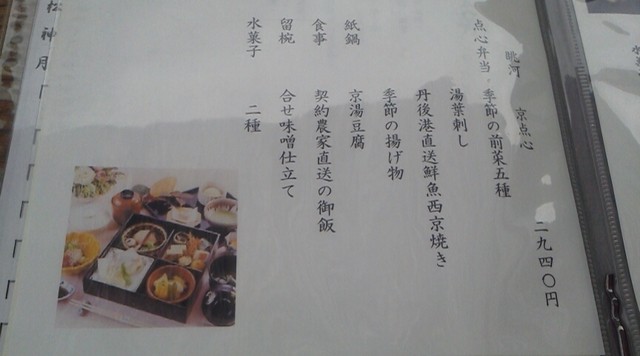 眺河　京点心　二九四〇円
点心弁当　季節の前菜五種
湯葉刺し
丹後港直送鮮魚西京焼き
季節の揚げ物
紙鍋　京湯豆腐
食事　契約農家直送の御飯
留椀　合せ味噌仕立て
水菓子　二種
松
神
月